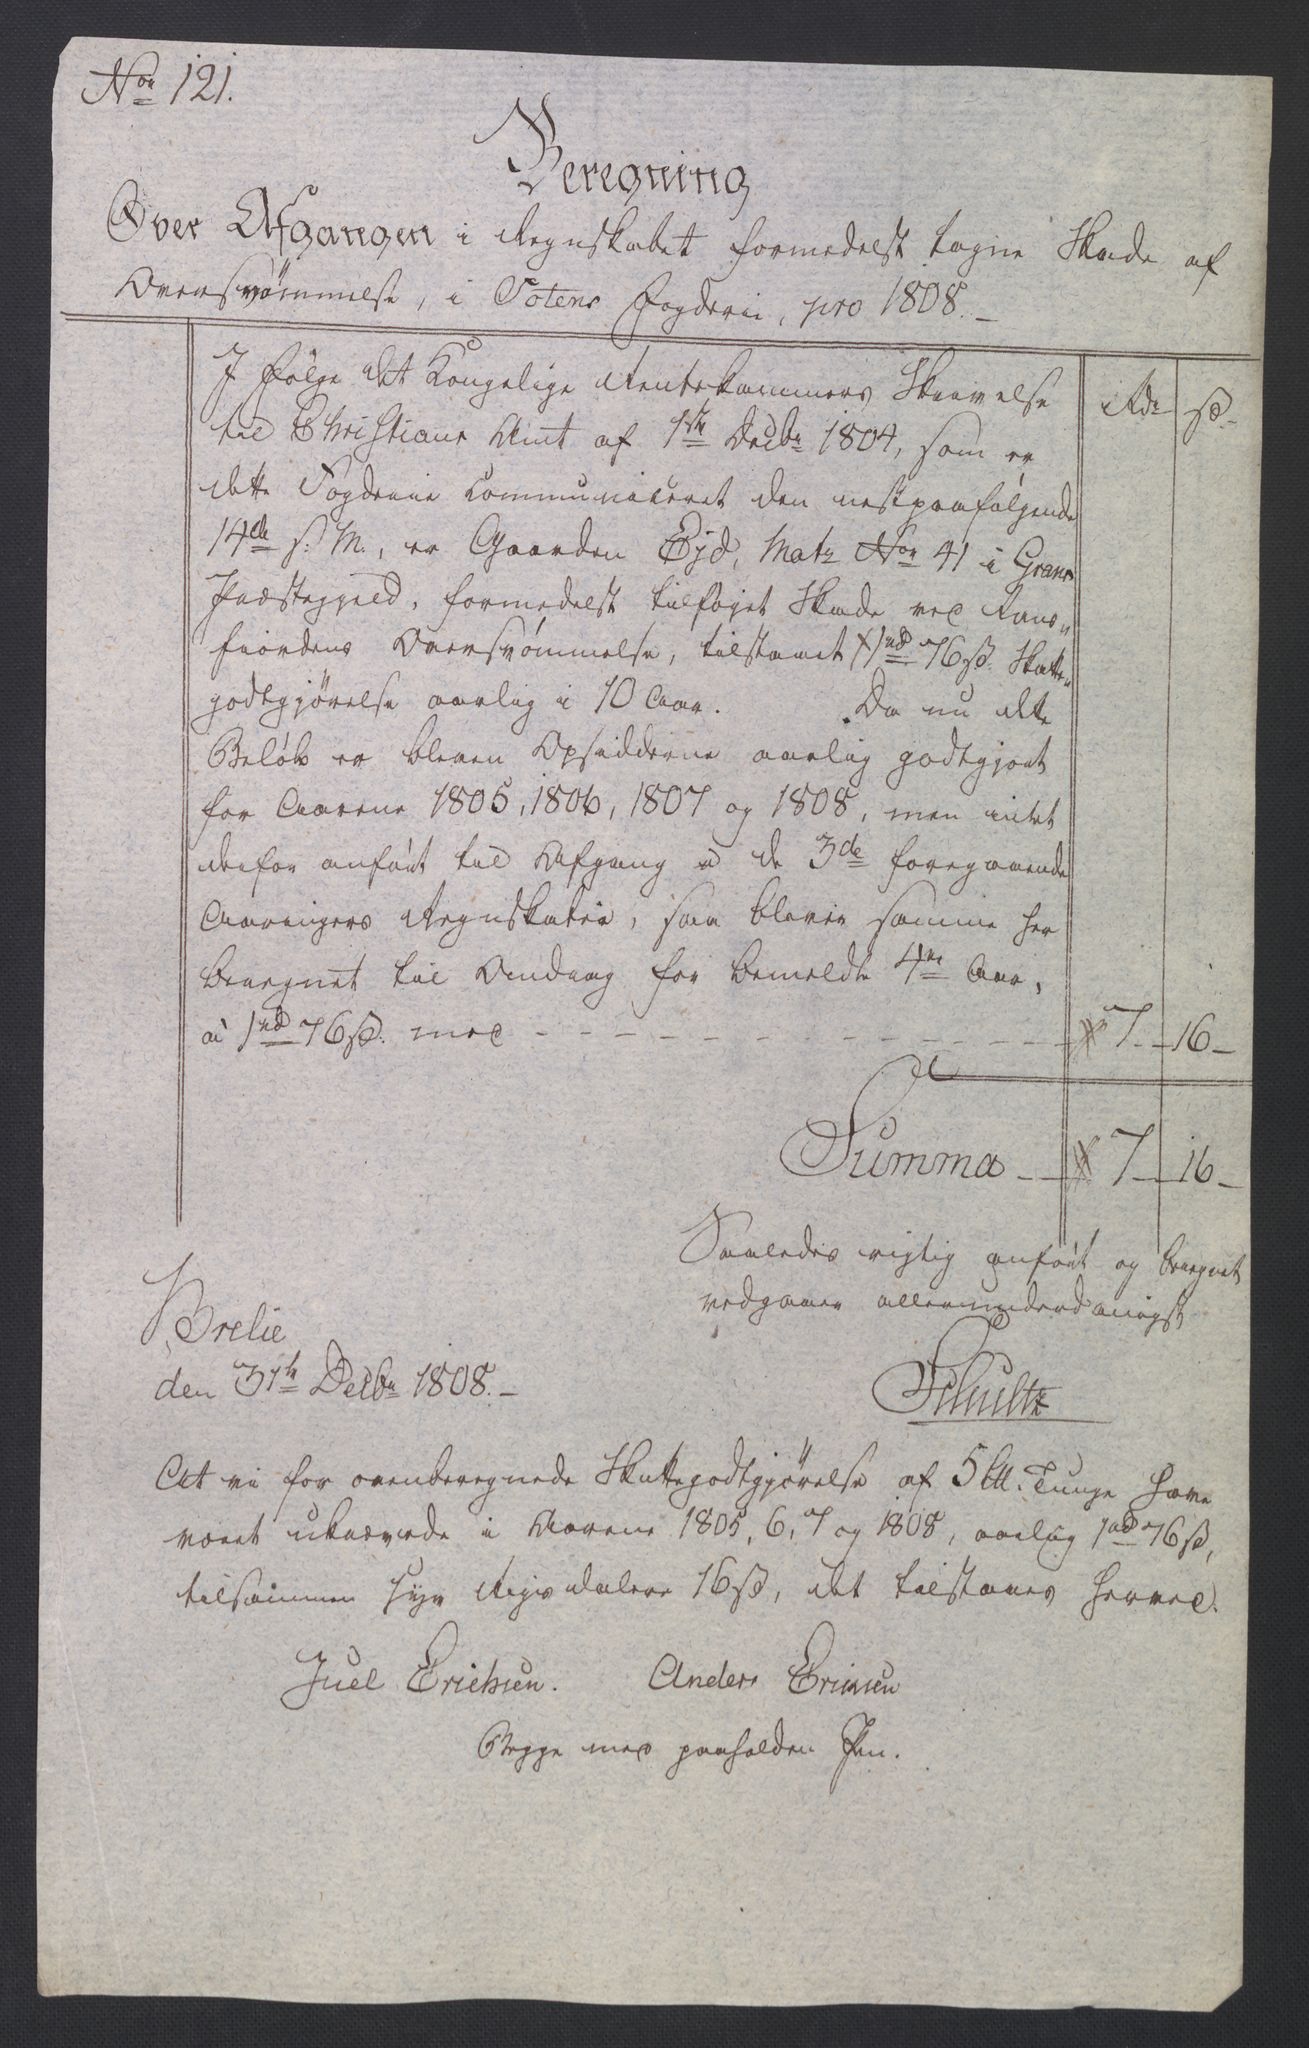 Nor 121.
Beregning
Over Afgangen i Regnskabet formedelst tagne Skade af
Oversvømmelse, i Totens Fogderie, pro 1808.
J Følge det Kongelige Rentekammers Skrivelse
til Christians Amt af 1ste Decbr 1804, som er
dette Fogderie communiceret den nestpaafølgende
14de s: M., er Gaarden Ejd, Matr Nor 41 i Grans
Præstegjeld, formedelst tilføjet Skade ved Rans-
fiordens Oversvømmelse, tilstaaet 1rd 76 ß. Skatte-
godtgjørelse aarlig i 10 Aar. Da nu dette
Beløb er bleven Opsidderne aarlig godtgjort
for Aarene 1805, 1806, 1807 og 1808, men intet
derfor anført til Afgang i de 3de foregaaende
Aaringers Regnskaber, saa bliver samme her
beregnet til Omdrag for bemeldte 4re Aar,
à 1rd 76 ß. med - - -
Rdr ß
7 - 16 -
Summa - 7 - 16 -
Saaledes rigtig anført og beregnet
vedgaaer allerunderdanigst
Brelie
den 31te Decbr 1808. -
Schultz
At vi for ovenberegnede Skattegodtgjørelse af 5 ℔. Tunge have
været ukrævede i Aarene 1805, 6, 7 og 1808, aarlig 1rd 76 ß,
tilsammen syv Rigsdaler 16 ß, det tilstaaes herved.
Juel Erichsen. Anders Erichsen
Begge med paaholden Pen.